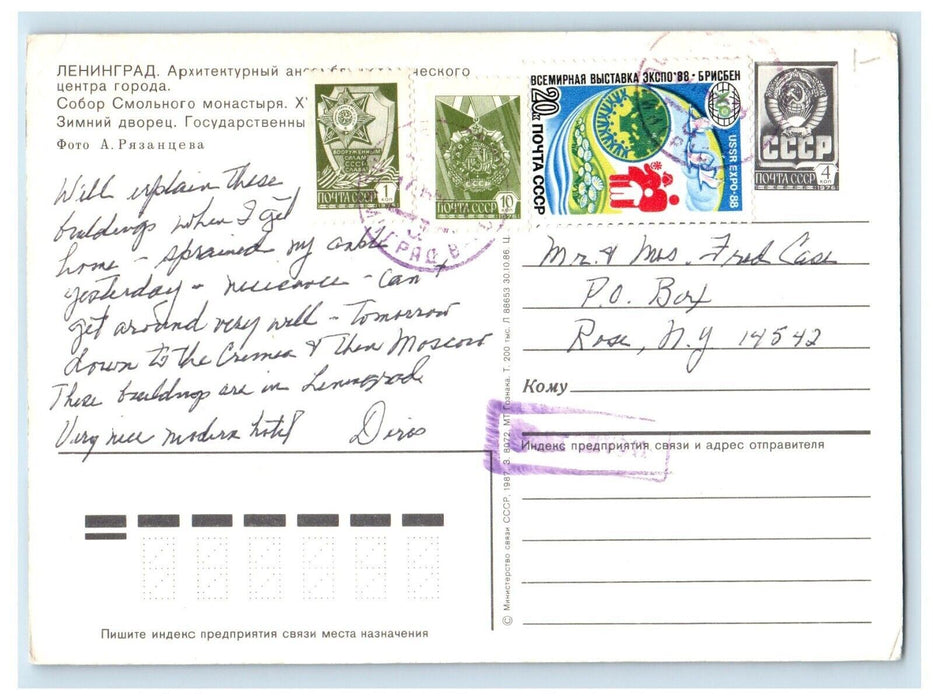 ЛЕНИНГРАД. Архитектурный
центра города.
Собор Смольного монастыря.
Зимний дворец.
Фото А. Рязанцева
ВООРУЖЕННЫМ
СИЛАМ
СССР
СЛАВА
ПОЧТА СССР
1
КОП
1976
ПОЧТА СССР
10
1976
ВСЕМИРНАЯ ВЫСТАВКА ЭКСПО'88 • БРИСБЕН
20к
ПОЧТА СССР
USSR EXPO-88
СССР
ПОЧТА СССР
4
КОП
1976
Will explain these
buildings when I get
home - sprained my ankle
yesterday - nuisance - can't
get around very well - Tomorrow
down to the Crimea & then Moscow
These buildings are in Leningrad
Very nice modern hotel Doris
Mr. & Mrs. Fred Case
P.O. Box
Rose, N.Y 14542
Кому
Индекс предприятия связи и адрес отправителя
© Министерство связи СССР, 1987. З. 8072. МТ Гознака. Т. 200 тыс. Л 88653 30.10.86 Ц.
Пишите индекс предприятия связи места назначения